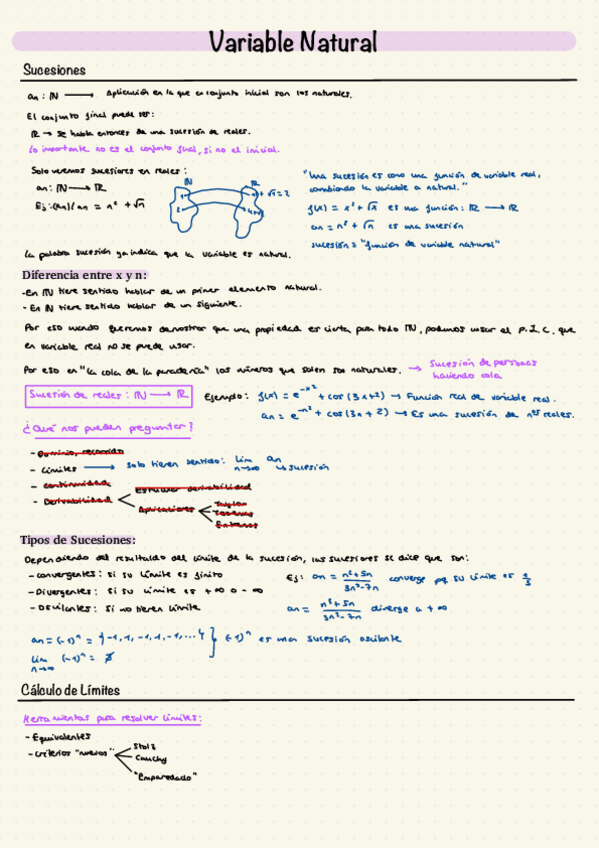 Variable Natural
Sucesiones
an : ℕ ⟶ Aplicación en la que en conjunto inicial son los naturales.
El conjunto final puede ser:
ℝ → se habla entonces de una sucesión de reales.
Lo importante no es el conjunto final, si no el inicial.
Solo veremos sucesiones en reales:
an: ℕ ⟶ ℝ
Ej: (an)/ an = n² + √n
ℕ ℝ
"Una sucesión es como una función de variable real,
cambiando la variable a natural."
f(x) = x² + √x es una función: ℝ ⟶ ℝ
an = n² + √n es una sucesión
sucesión = "función de variable natural"
La palabra sucesión ya indica que la variable es natural.
Diferencia entre x y n:
-En ℕ tiene sentido hablar de un primer elemento natural.
- En ℕ tiene sentido hablar de un siguiente.
Por eso cuando queremos demostrar que una propiedad es cierta para todo ℕ, podemos usar el P.I.C, que
en variable real no se puede usar.
Por eso en "la cola de la panadería" los números que salen son naturales. → Sucesión de personas
haciendo cola
Sucesión de reales: ℕ ⟶ ℝ
Ejemplo: f(x) = e^-x² + cos(3x+2) → Función real de variable real.
an = e^-n² + cos(3n+2) → Es una sucesión de nºs reales.
¿Qué nos pueden preguntar?
- Dominio, recorrido
- Límites ⟶ Solo tienen sentido: lim n→∞ an ↳ sucesión
- Continuidad
- Derivabilidad
Estudiar derivabilidad
Aplicaciones
Taylor
Teoremas
Extremos
Tipos de Sucesiones:
Dependiendo del resultado del límite de la sucesión, las sucesiones se dice que son:
- Convergentes: si su límite es finito
- Divergentes: si su límite es +∞ o -∞
- Oscilantes: si no tienen límite
Ej: an = n²+5n / 3n²-7n converge pq su límite es 1/3
an = n²+5n / 3n²-7n diverge a +∞
an = (-1)ⁿ = {-1, 1, -1, 1, -1, ...}
lim n→∞ (-1)ⁿ = ∄
(-1)ⁿ es una sucesión oscilante
Cálculo de Límites
Herramientas para resolver límites:
- Equivalentes
- Criterios "nuevos"
Stolz
Cauchy
"Emparedado"